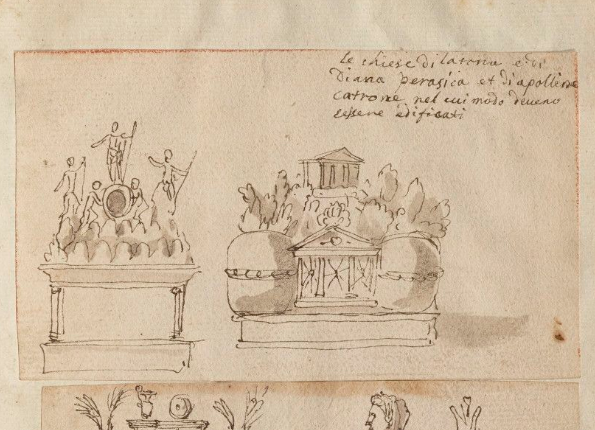 le chiese di latona e di
Diana persica et di apolline
catrone nel cui modo deveno
essere edificati